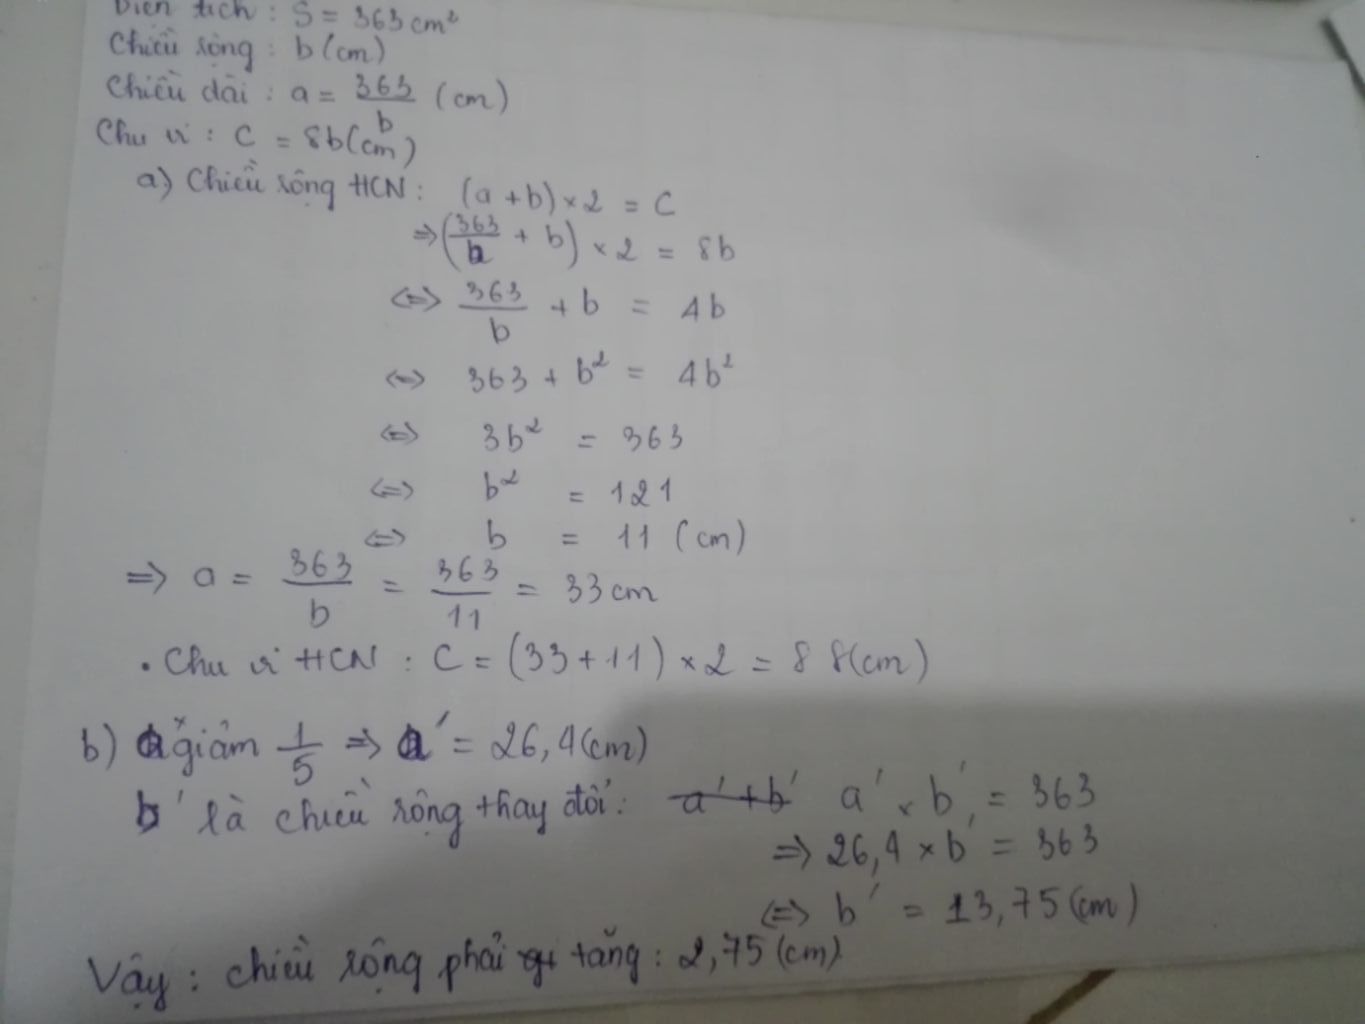 Diện tích : S = 363 cm²
Chiều rộng : b (cm)
Chiều dài : a = 363/b (cm)
Chu vi : C = 8b (cm)
a) Chiều rộng HCN : (a + b) × 2 = C
⇒ (363/b + b) × 2 = 8b
⇔ 363/b + b = 4b
⇔ 363 + b² = 4b²
⇔ 3b² = 363
⇔ b² = 121
⇔ b = 11 (cm)
⇒ a = 363/b = 363/11 = 33 cm
• Chu vi HCN : C = (33 + 11) × 2 = 88 (cm)
b) a giảm 1/5 ⇒ a' = 26,4 (cm)
b' là chiều rộng thay đổi : a' + b' a' × b' = 363
⇒ 26,4 × b' = 363
⇔ b' = 13,75 (cm)
Vậy : chiều rộng phải tăng : 2,75 (cm)